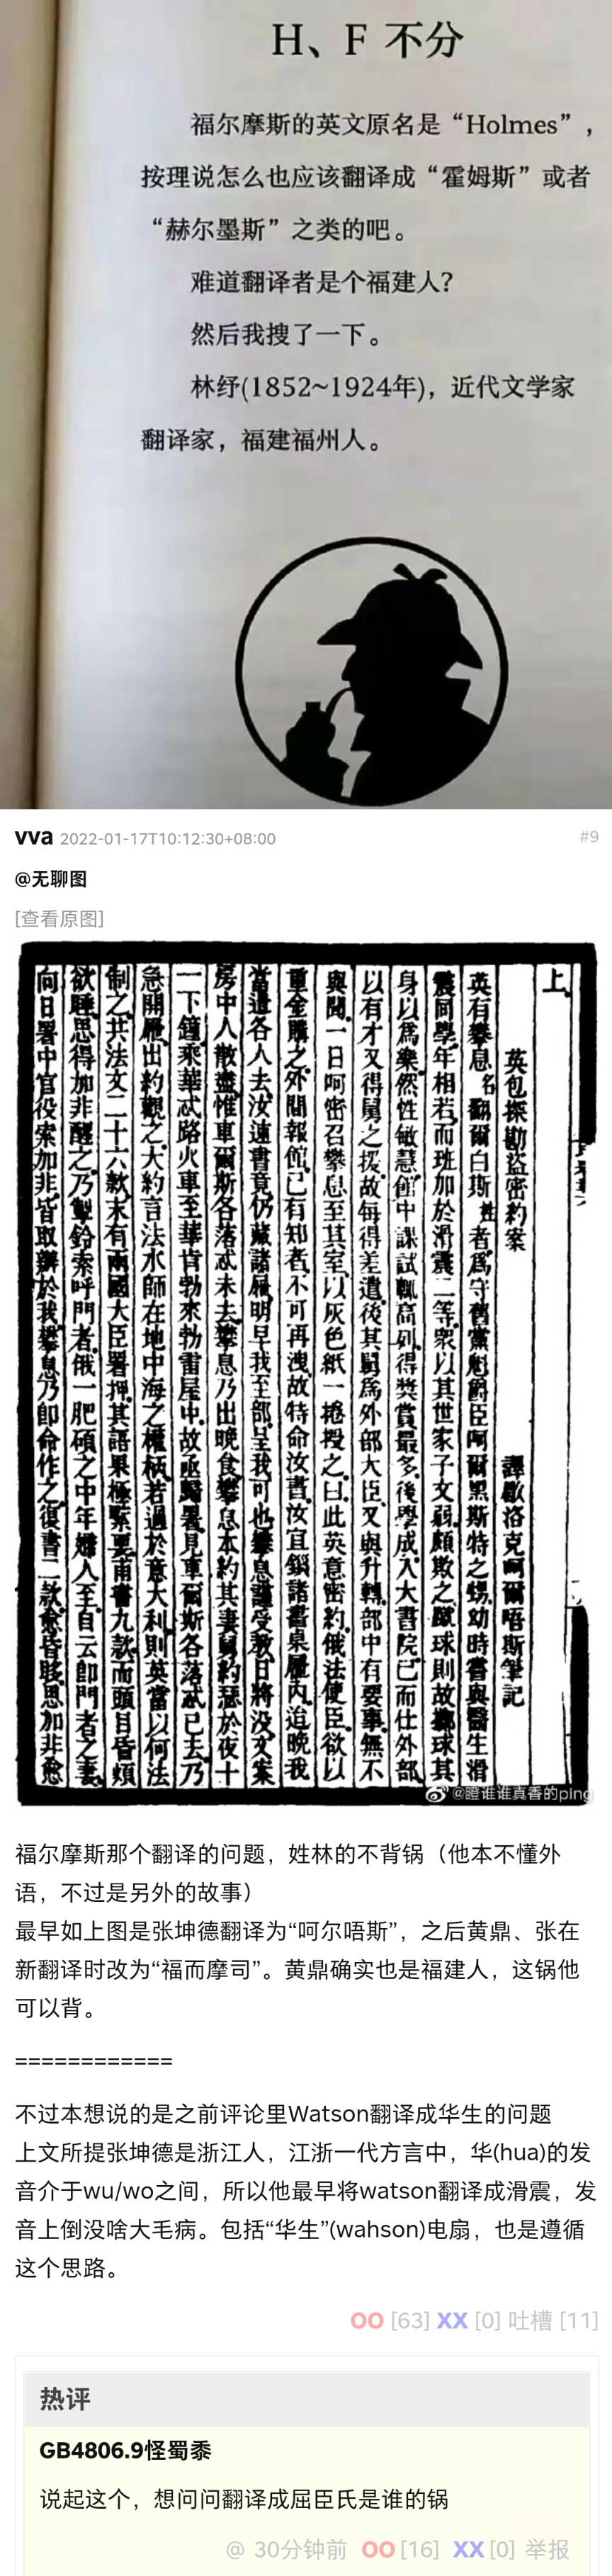 H、F 不分
福尔摩斯的英文原名是“Holmes”，
按理说怎么也应该翻译成“霍姆斯”或者
“赫尔墨斯”之类的吧。
难道翻译者是个福建人？
然后我搜了一下。
林纾(1852~1924年)，近代文学家
翻译家，福建福州人。
vva 2022-01-17T10:12:30+08:00 #9
@无聊图
[查看原图]
上
英包探勘盜密約案 譯歇洛克呵爾唔斯筆記
英有攀息名翻爾白斯姓者爲守舊黨魁爵臣呵爾黑斯特之甥幼時嘗與醫生滑
震同學年相若而班加於滑震二等衆以其世家子文弱頗欺之蹴球則故擲球其
身以爲樂然性敏慧館中課試輒高列得獎賞最多後學成入大書院已而仕外部
以有才又得舅之援故每得差遣後其舅爲外部大臣又與升轉部中有要事無不
與聞一日呵密召攀息至其室以灰色紙一捲授之曰此英意密約俄法使臣欲以
重金購之外間報館已有知者不可再洩故特命汝書汝宜鎖諸書桌屜內迨晚我
當遣各人去汝速書竟仍藏諸屜明早我至部呈我可也攀息謹受教日將沒文案
房中人散盡惟車爾斯各落忒未去攀息乃出晚食攀息本約其妻舅約瑟於夜十
一下鐘乘華忒路火車至華肯勃來勃雷屋中故亟歸署見車爾斯各落忒已去乃
急開屜出約觀之大約言法水師在地中海之權柄若過於意大利則英當以何法
制之共法文二十六款末有兩國大臣署押其語果極緊要甫書九款而頭目昏頰
欲睡思得加非醒之乃掣鈴索呼門者俄一肥碩之中年婦人至自云卽門者之妻
向日署中官役索加非皆取辦於我攀息乃卽命作之復書二款愈昏眵思加非愈
@瞪谁谁真香的ping
福尔摩斯那个翻译的问题，姓林的不背锅（他本不懂外
语，不过是另外的故事）
最早如上图是张坤德翻译为“呵尔唔斯”，之后黄鼎、张在
新翻译时改为“福而摩司”。黄鼎确实也是福建人，这锅他
可以背。
============
不过本想说的是之前评论里Watson翻译成华生的问题
上文所提张坤德是浙江人，江浙一代方言中，华(hua)的发
音介于wu/wo之间，所以他最早将watson翻译成滑震，发
音上倒没啥大毛病。包括“华生”(wahson)电扇，也是遵循
这个思路。
OO [63] XX [0] 吐槽 [11]
热评
GB4806.9怪蜀黍
说起这个，想问问翻译成屈臣氏是谁的锅
@ 30分钟前 OO [16] XX [0] 举报